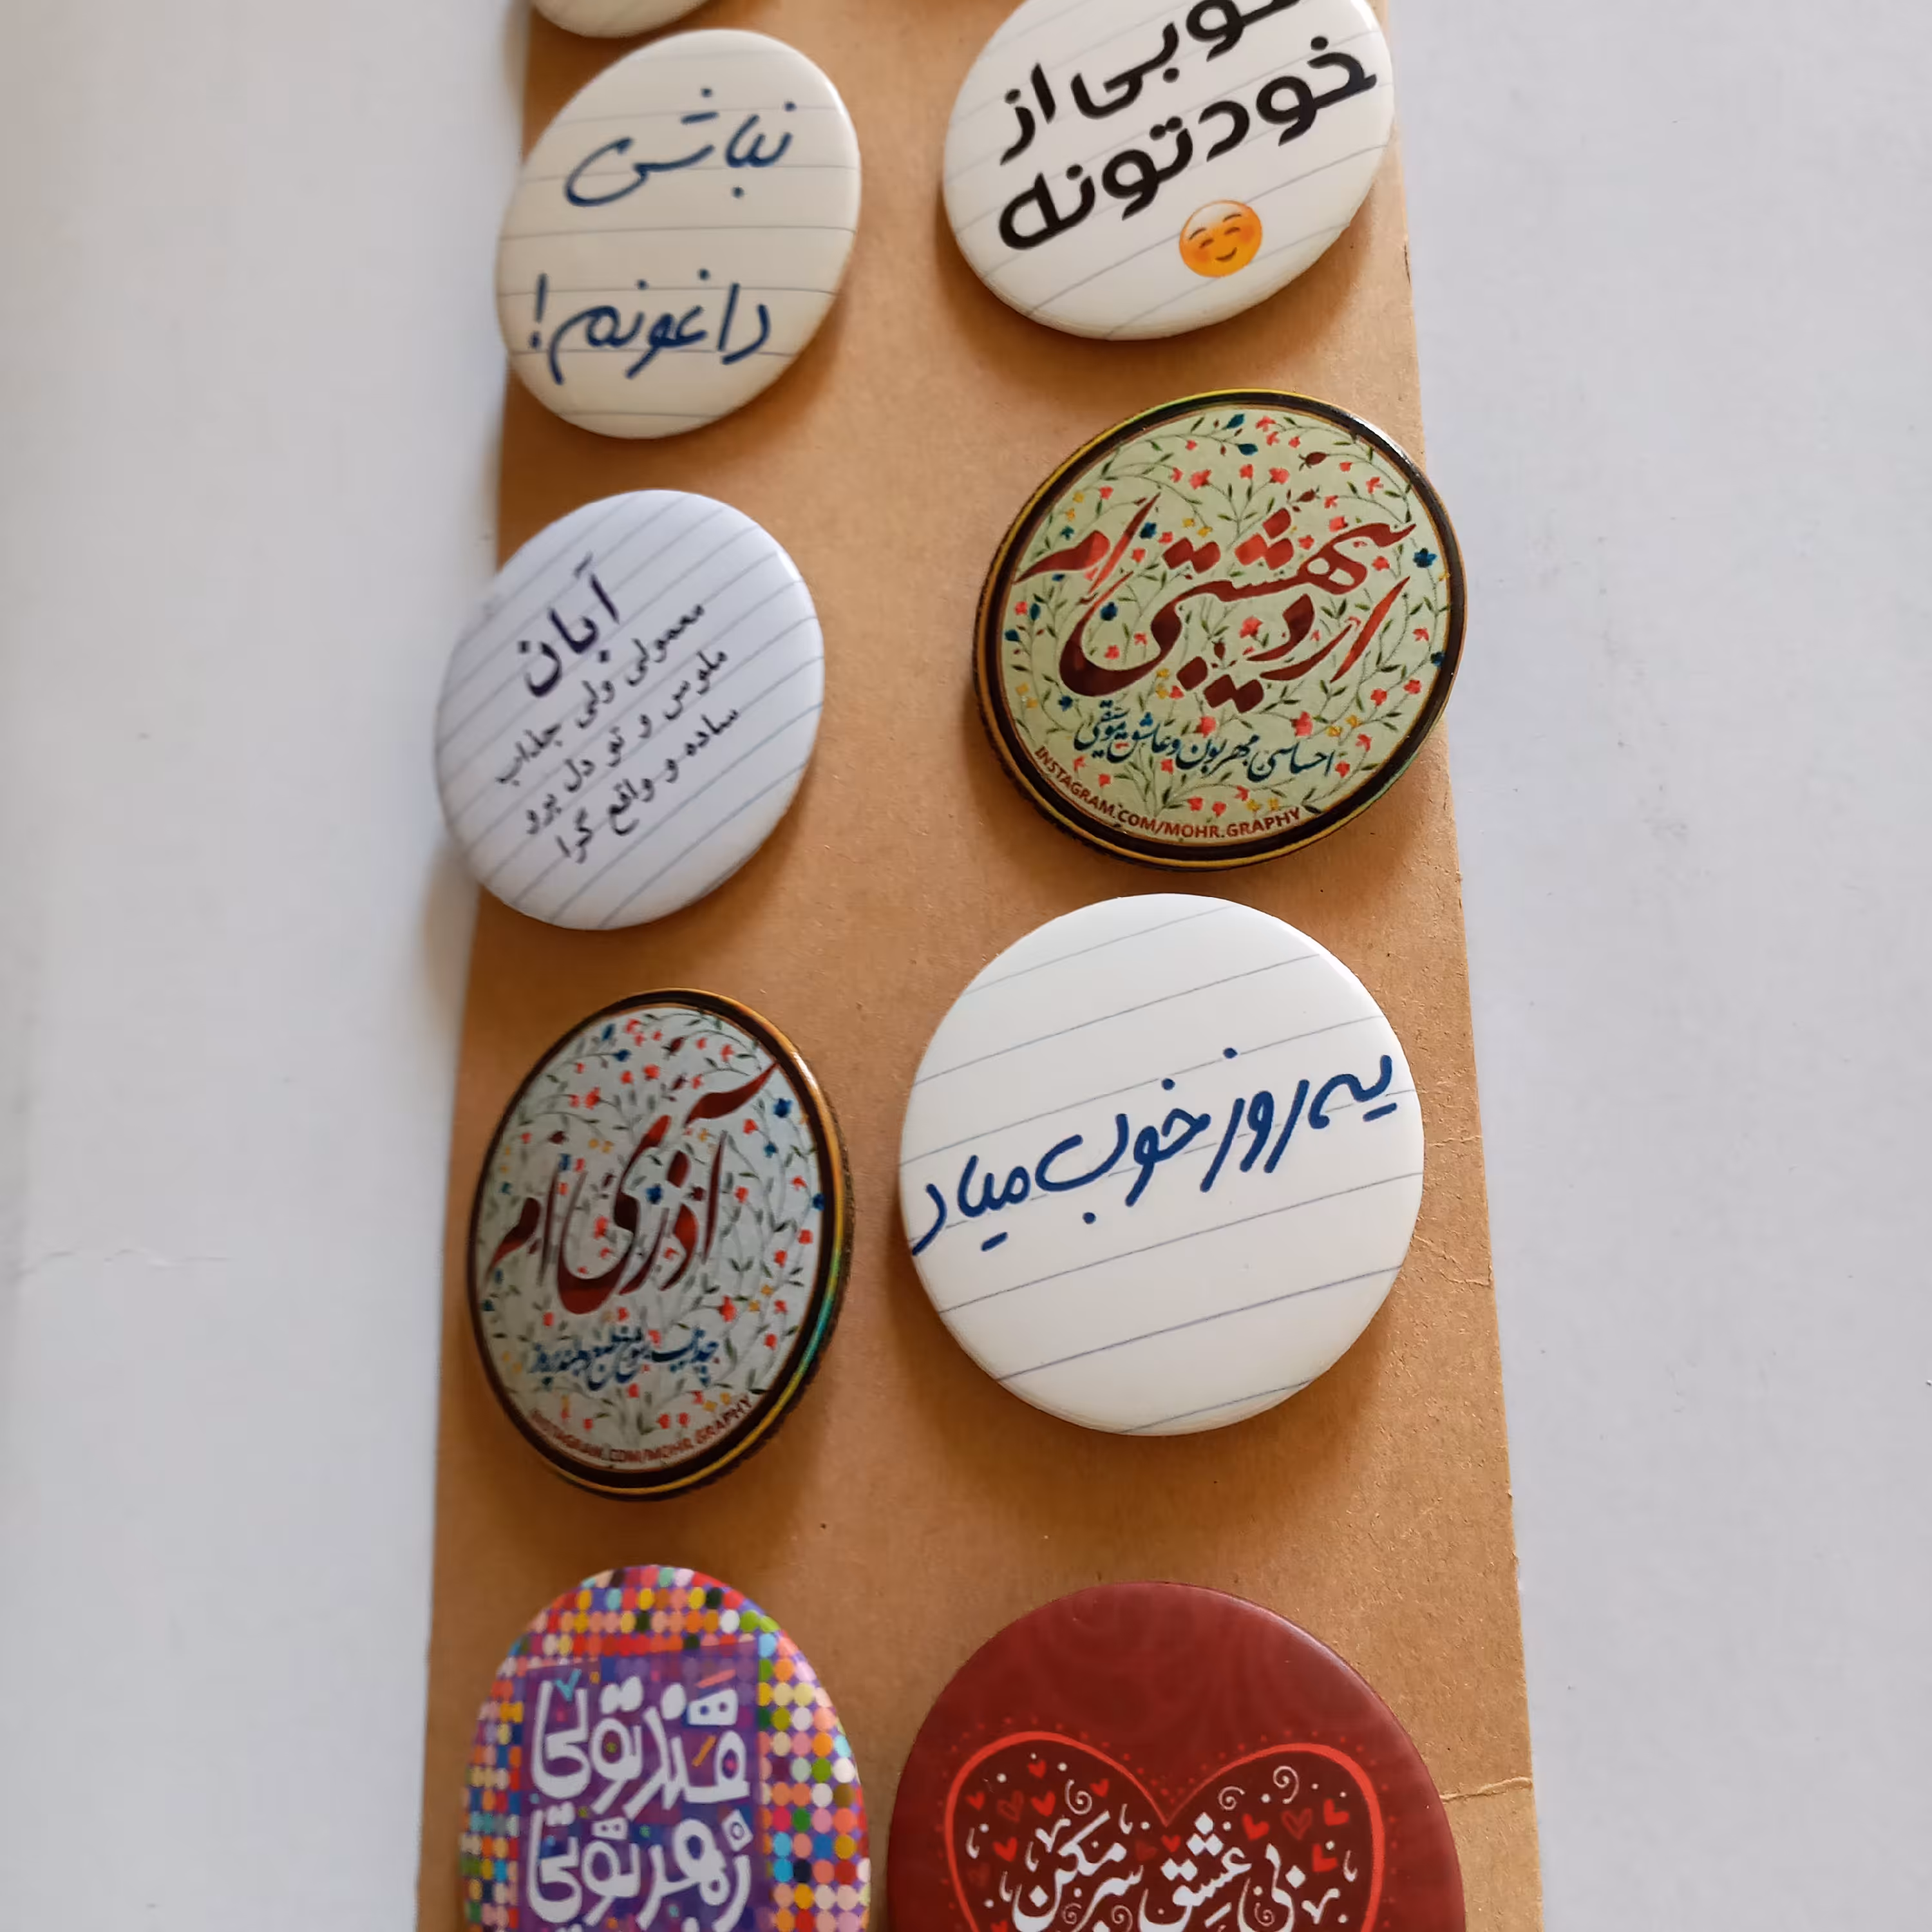 نباشی
داغونم!
خوبی از
خودتونه
آبان
معمولی ولی جذاب
ملوس و تو دل برو
ساده و واقع گرا
اردیبهشتی ام
احساسی مهربون و عاشق موسیقی
INSTAGRAM.COM/MOHR.GRAPHY
آذری ام
INSTAGRAM.COM/MOHR.GRAPHY
یه روز خوب میاد
قند تویی
زهر تویی
بی عشق سر مکن